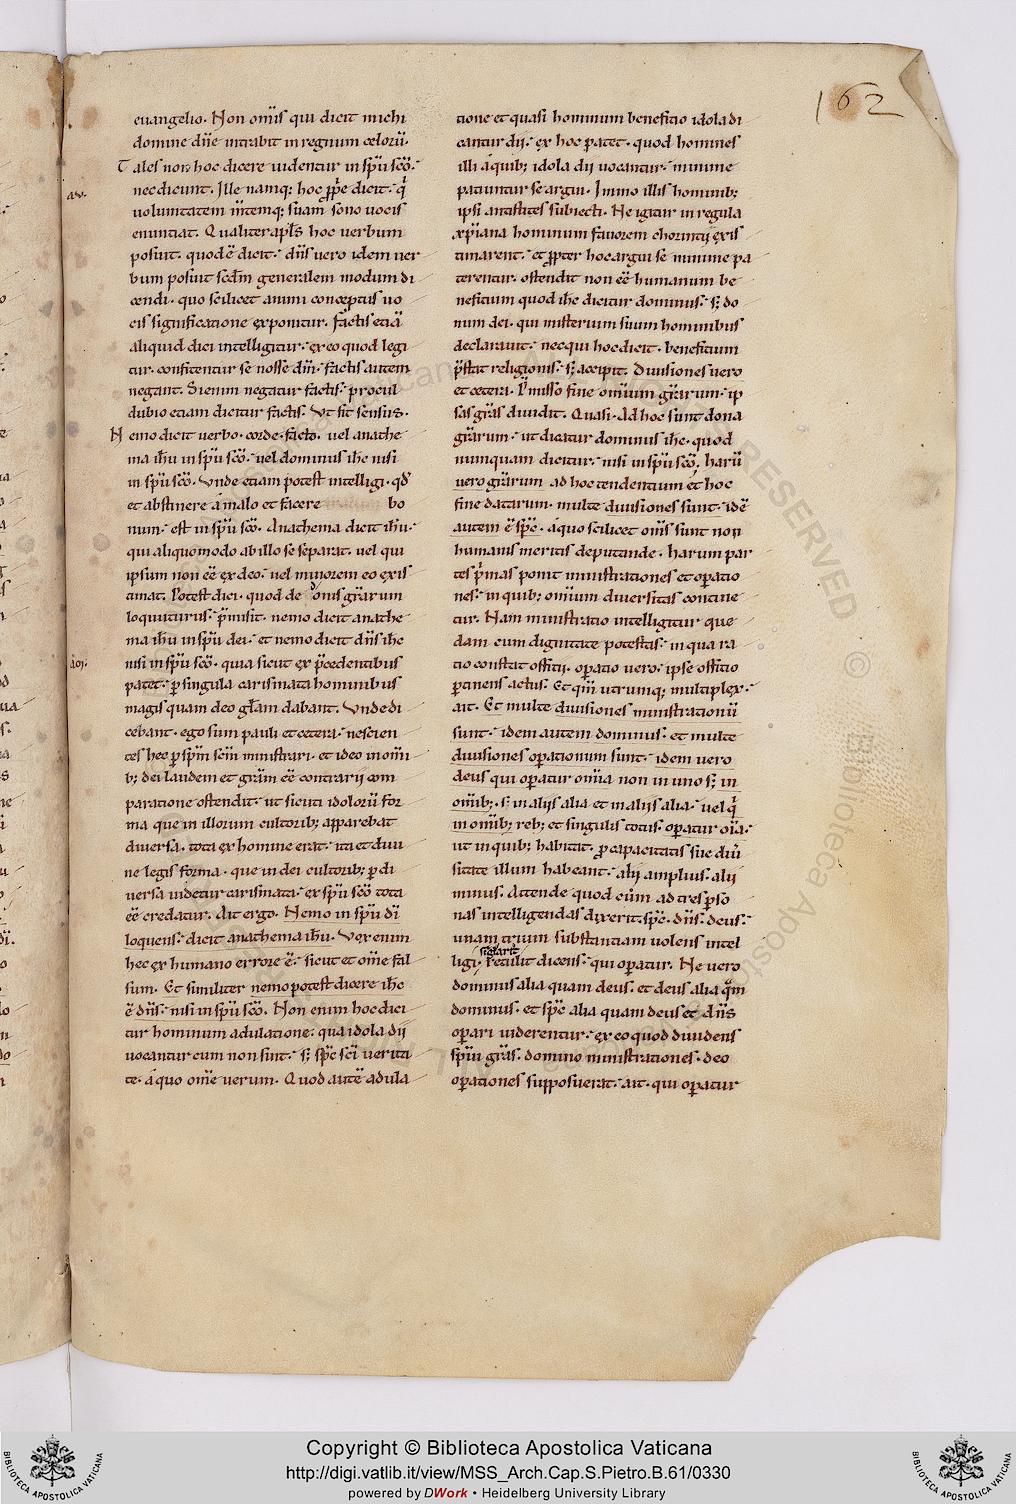 162
euangelio. Non om̅s qui dicit michi
domine dn̅e intrabit in regnum celoru̅.
Tales non hoc dicere uidentur in sp̅u sc̅o.
nec dicunt. Ille namq; hoc ꝓp̅e dicit. q̅
uoluntatem m̅temq; suam sono uocis
enuntiat. Qualiter apl̅s hoc uerbum
posuit. quod e̅ dicit. dn̅s uero idem uer
bum posuit scd̅m generalem modum di
cendi. quo scilicet animi conceptus uo
cis significatione exponitur. factis etia̅
aliquid dici intelligitur. ex eo quod legi
tur. confitentur se nosse dm̅. factis autem
negant. Si enim negatur factis. procul
dubio etiam dicitur factis. Vt sit sensus.
Nemo dicit uerbo. corde. facto. uel anathe
ma ih̅u in sp̅u sc̅o. uel dominus ihc nisi
in sp̅u sc̅o. Vnde etiam potest intelligi. qd̅
et abstinere a malo et facere bo
num. est in sp̅u sc̅o. Anathema dicit ih̅u.
qui aliquo modo ab illo se separat. uel qui
ipsum non ee̅ ex deo. uel minorem eo exis
timat. Potest dici. quod de donis gr̅arum
loquuturus. p̅misit. nemo dicit anathe
ma ih̅u in sp̅u dei. et nemo dicit dn̅s ihc
nisi in sp̅u sc̅o. quia sicut ex p̅cedentibus
patet. ꝑ singula carismata hominibus
magis quam deo gl̅am dabant. Vnde di
cebant. ego sum pauli et cetera. nescien
tes hec ꝑ sp̅m sc̅m ministrari. et ideo in om̅i
b; dei laudem et gr̅am ee̅ contrarij com
paratione ostendit. ut sicuti idoloru̅ for
ma que in illorum cultorib; apparebat
diuersa. tota ex homine erat. ita et diui
ne legis forma. que in dei cultorib; ꝑ di
uersa uidetur carismata. ex sp̅u sc̅o tota
ee̅ credatur. Ait ergo. Nemo in sp̅u di̅
loquens. dicit anathema ih̅u. Vox enim
hec ex humano errore e̅. sicut et om̅e fal
sum. Et similiter nemo potest dicere ihc
e̅ dn̅s. nisi in sp̅u sc̅o. Non enim hoc dici
tur hominum adulatione. qua idola dij
uocantur cum non sint. s; sp̅c sci̅ uerita
te. a quo om̅e uerum. Quod aute̅ adula
tione et quasi hominum beneficio idola di
cantur dij. ex hoc patet. quod homines
illi a quib; idola dij uocantur. minime
patiuntur se argui. Immo illis hominib;
ipsi antistites subiecti. Ne igitur in regula
xp̅iana hominum fauorem chorintij exis
timarent. et ꝓpter hoc argui se minime pa
terentur. ostendit non ee̅ humanum be
neficium quod ihc dicitur dominus. s; do
num dei. qui misterium suum hominibus
declarauit. nec qui hoc dicit. beneficium
p̅stat religionis. s; accipit. Diuisiones uero
et cetera. P̅misso fine om̅ium gr̅arum. ip
sas gr̅as diuidit. Quasi. Ad hoc sunt dona
gr̅arum. ut dicatur dominus ihc. quod
numquam dicitur. nisi in sp̅u sc̅o. haru̅
uero gr̅arum ad hoc tendentium et hoc
fine datarum. multe diuisiones sunt. ide̅
autem e̅ sp̅c. a quo scilicet om̅s sunt non
humanis meritis deputande. harum par
tes p̅mas ponit ministrationes et oꝑatio
nes. in quib; om̅ium diuersitas contine
tur. Nam ministratio intelligitur que
dam cum dignitate potestas. in qua ra
tio constat offitij. oꝑatio uero. ipse offitio
ꝑtinens actus. Et qm̅ utrumq; multiplex.
ait. Et multe diuisiones ministrationu̅
sunt. idem autem dominus. et multe
diuisiones oꝑationum sunt. idem uero
deus qui oꝑatur om̅ia non in uno s; in
om̅ib;. s; in alijs alia et in alijs alia. uel q̅
in om̅ib; reb; et singulis totus. oꝑatur oi̅a.
ut in quib; habitat. ꝓ capacitatis sue diu̅
sitate illum habeant. alij amplius. alij
minus. Attende quod cum ad tres ꝑso
nas intelligendas dixerit. sp̅c. dn̅s. deus.
unam trium substantiam uolens intel
ligi. retulit dicens. qui oꝑatur. Ne uero
dominus alia quam deus. et deus alia qm̅
dominus. et sp̅c alia quam deus et dn̅s
oꝑari uiderentur. ex eo quod diuidens
sp̅ui gr̅as. domino ministrationes. deo
oꝑationes supposuerat. ait. qui oꝑatur
Copyright © Biblioteca Apostolica Vaticana
http://digi.vatlib.it/view/MSS_Arch.Cap.S.Pietro.B.61/0330
powered by DWork • Heidelberg University Library